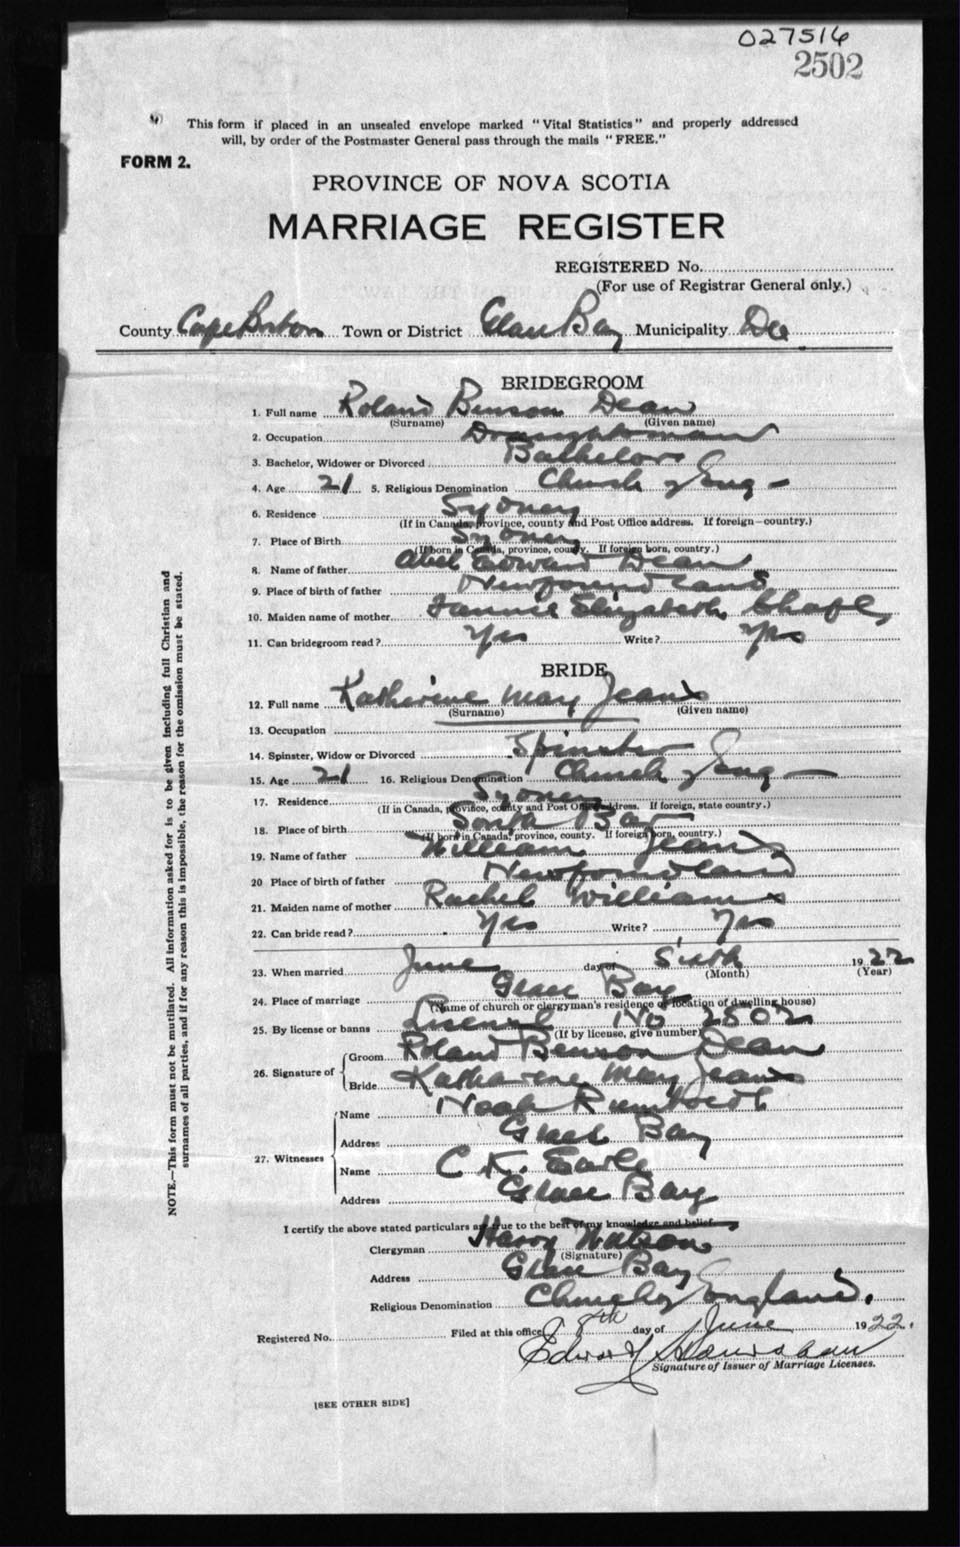 027516
2502
This form if placed in an unsealed envelope marked "Vital Statistics" and properly addressed
will, by order of the Postmaster General pass through the mails "FREE."
FORM 2.
PROVINCE OF NOVA SCOTIA
MARRIAGE REGISTER
REGISTERED No.
(For use of Registrar General only.)
County Cape Breton Town or District Glace Bay Municipality Do
BRIDEGROOM
1. Full name Roland Benson Dean
(Surname) (Given name)
2. Occupation Draughtsman
3. Bachelor, Widower or Divorced Bachelor
4. Age 21 5. Religious Denomination Church of Eng -
6. Residence Sydney
(If in Canada, province, county and Post Office address. If foreign—country.)
7. Place of Birth Sydney
(If born in Canada, province, county. If foreign born, country.)
8. Name of father Abel Edward Dean
9. Place of birth of father Newfoundland
10. Maiden name of mother Fannie Elizabeth
11. Can bridegroom read? Yes Write? Yes
BRIDE
12. Full name Katherine May Jeans
(Surname) (Given name)
13. Occupation
14. Spinster, Widow or Divorced Spinster
15. Age 21 16. Religious Denomination Church of Eng —
17. Residence Sydney
(If in Canada, province, county and Post Office address. If foreign, state country.)
18. Place of birth South Bar
(If born in Canada, province, county. If foreign born, country.)
19. Name of father William Jeans
20 Place of birth of father Newfoundland
21. Maiden name of mother Rachel Williams
22. Can bride read? Yes Write? Yes
23. When married June day of Sixth 1922
(Month) (Year)
24. Place of marriage Glace Bay
(Name of church or clergyman's residence or location of dwelling house)
25. By license or banns License No 2502
(If by license, give number)
26. Signature of Groom Roland Benson Dean
Bride Katharine May Jeans
27. Witnesses Name Noah
Address Glace Bay
Name C K. Earle
Address Glace Bay
I certify the above stated particulars are true to the best of my knowledge and belief
Clergyman Harry Watson
(Signature)
Address Glace Bay
Religious Denomination Church of England.
Registered No. Filed at this office 8th day of June 1922.
Signature of Issuer of Marriage Licenses.
[SEE OTHER SIDE]
NOTE.—This form must not be mutilated. All information asked for is to be given including full Christian and
surnames of all parties, and if for any reason this is impossible, the reason for the omission must be stated.